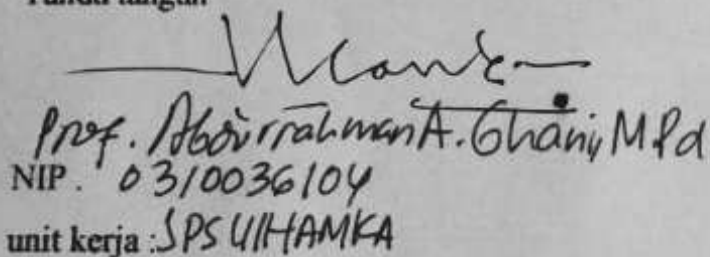 Tanda tangan
Prof. Abdurrahman A. Ghani, M.Pd
NIP. 0310036104
unit kerja : SPS UHAMKA